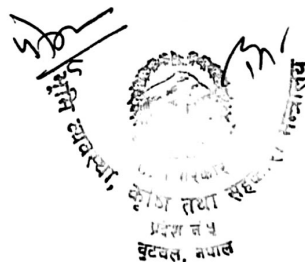 भूमि व्यवस्था, कृषि तथा सहकारी मन्त्रालय
प्रदेश नं ५
बुटवल, नेपाल